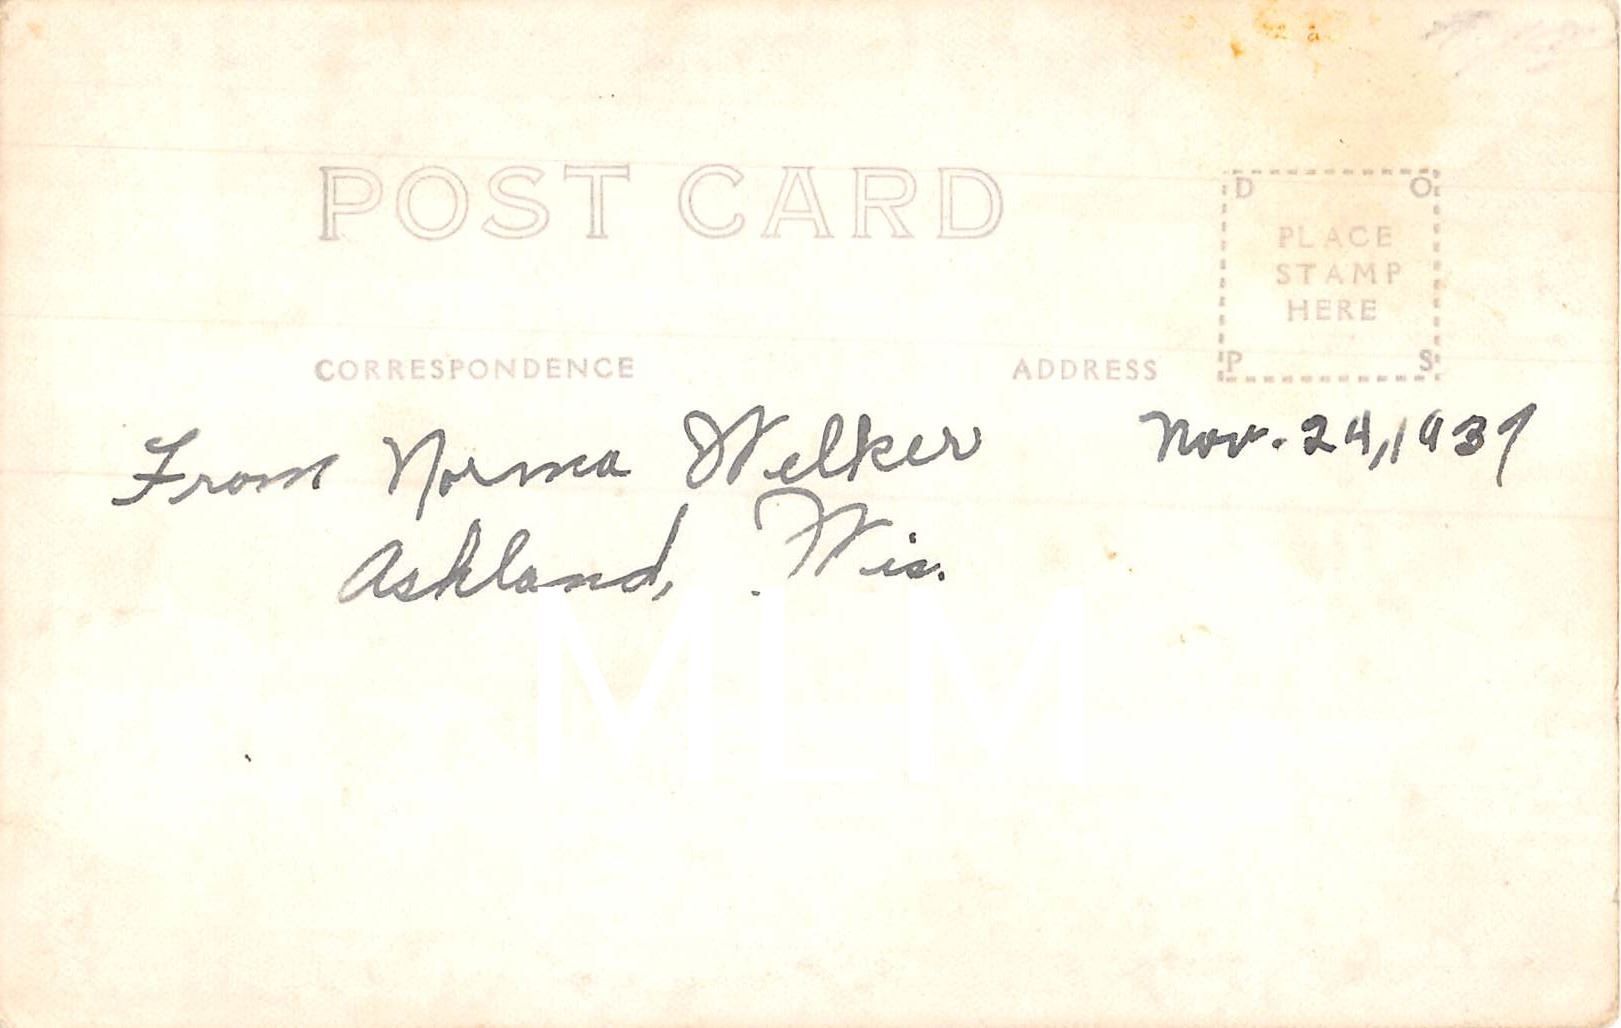 POST CARD
D O
PLACE
STAMP
HERE
P S
CORRESPONDENCE ADDRESS
From Norma Welker Nov. 24, 1937
Ashland, Wis.
MLM